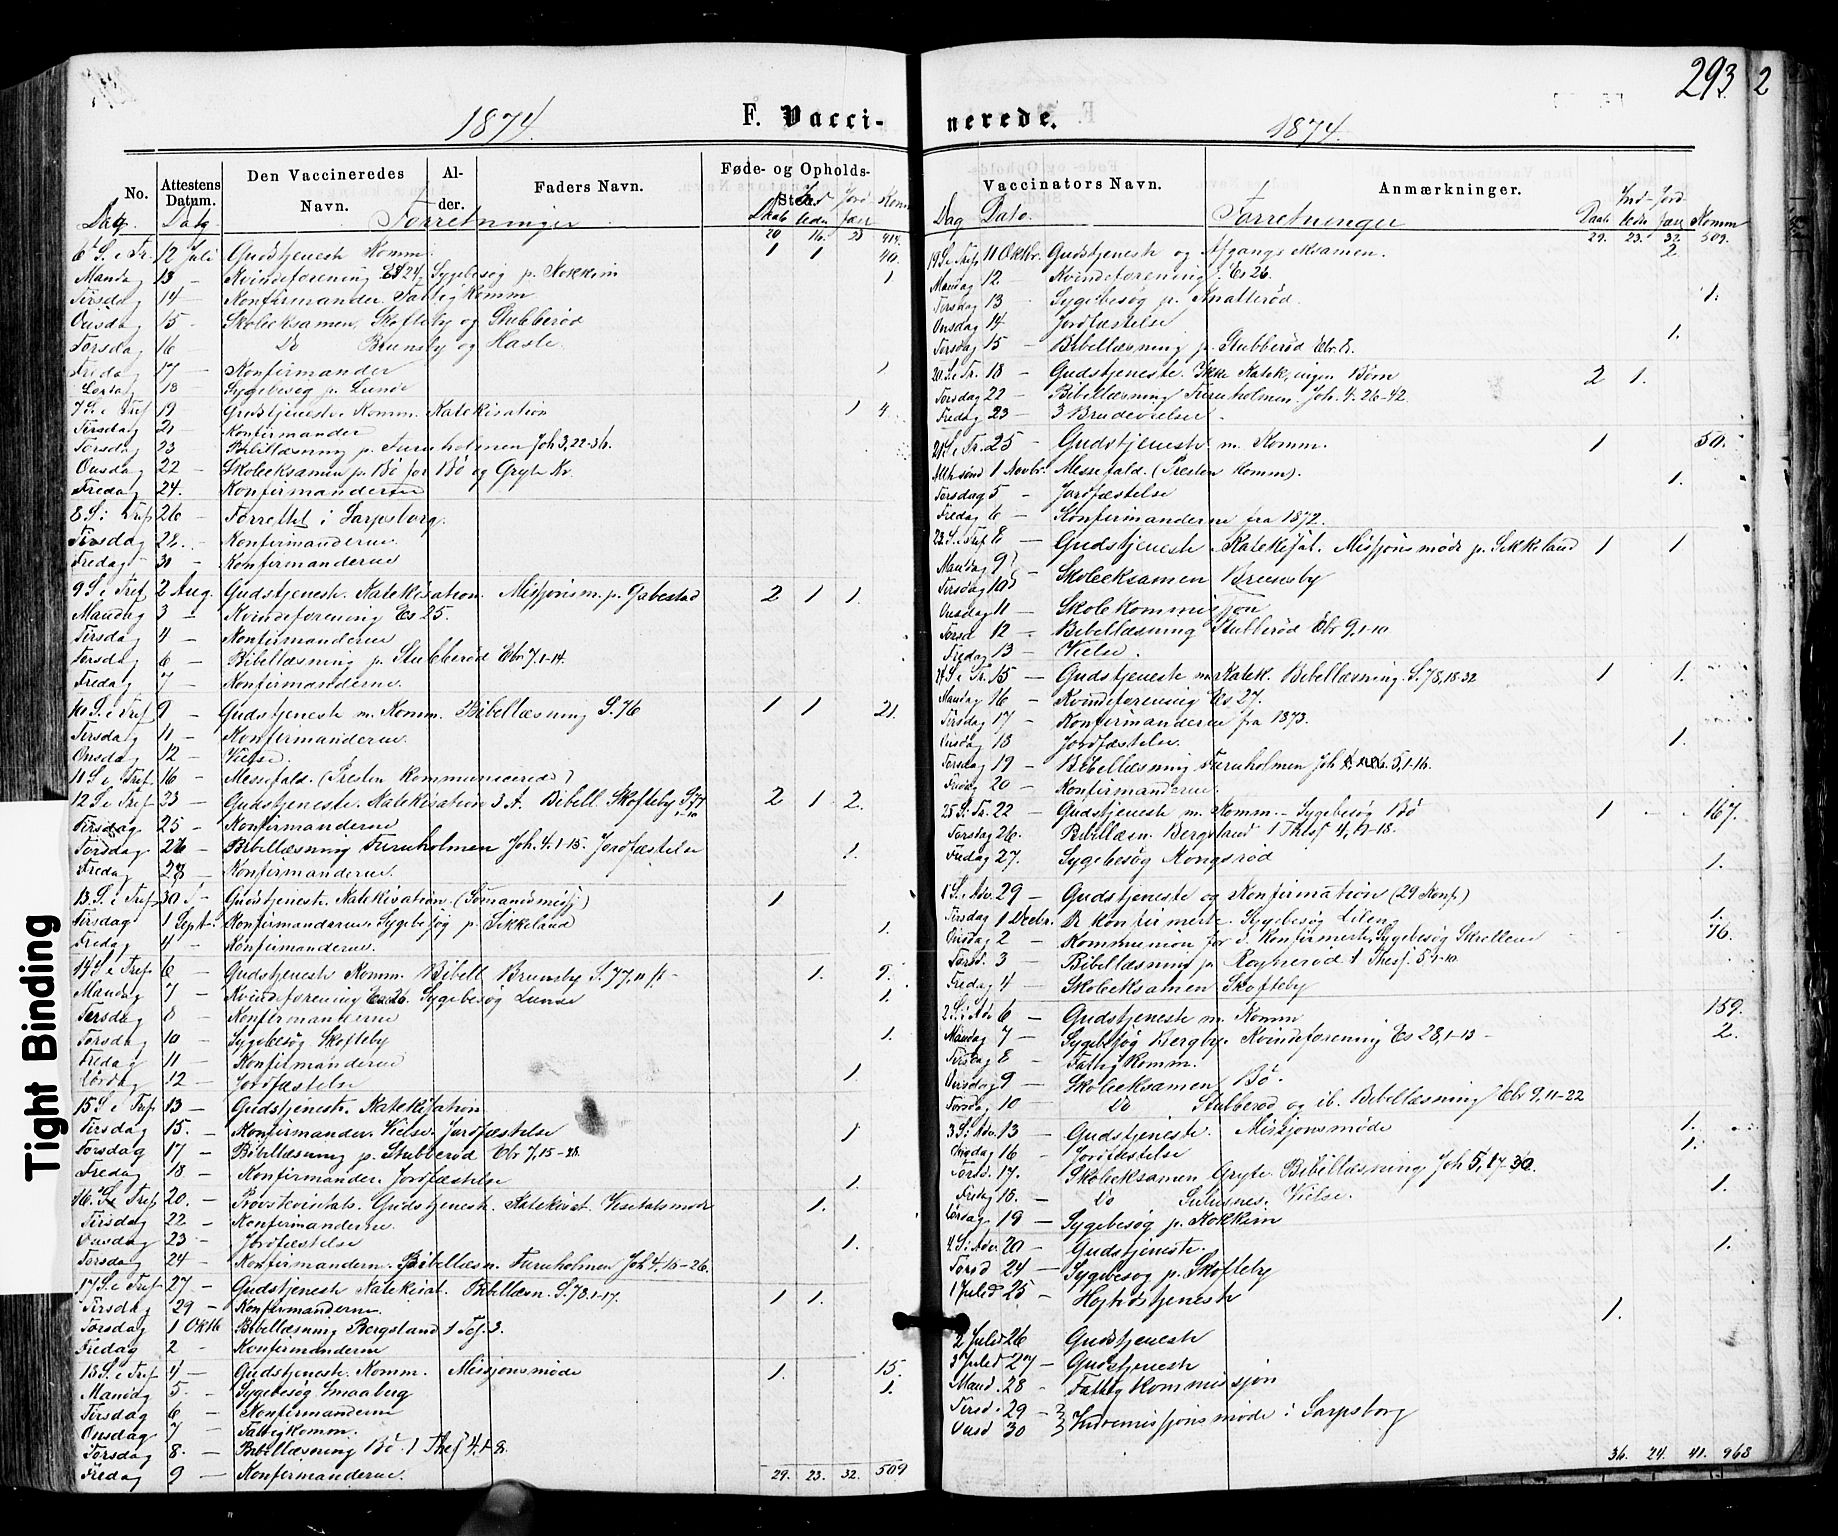 293
2
1874.
F. Vacci-
No.
Attestens Datum.
Den Vaccineredes Navn.
Al-der.
Faders Navn.
Føde- og Opholds-Sted
Dag. Dato Forretninger Daab Indledn Jordfæst Komm
20 16. 23 414.
6 S. e Tr. 12 Juli Gudstjeneste Komm. 1 1 40.
Mandag 13 - Kvindeforening Es 24 Sygebesøg p. Kokkim 1
Tirsdag 14 - Konfirmander. Fattigkomm
Onsdag 15 - Skoleeksamen, Skofteby og Stubberød
Torsdag 16 Do Brunsby og Hasle.
Fredag 17 - Konfirmander 1
Lørdag 18 - Sygebesøg p. Lunde
7 S. e Tref 19 Gudstjeneste Komm. Katekisation 1 4.
Tirsdag 21 - Konfirmander
Torsdag 23 Bibellæsning p. Furuholmen Joh 3, 22-36.
Onsdag 22 - Skoleeksamen p. Bø for Bø og Gryte Kr.
Fredag 24. - Konfirmanderne
8 S. i Tref 26 - Forrettet i Sarpsborg.
Tirsdag 28. - Konfirmanderne.
Fredag 31 - Konfirmanderne
9 S. e Tref 2 Aug. Gudstjeneste. Katekisation. Missjonsm. p. Gabestad 2 1 1.
Mandag 3 - Kvindeforening Es 25.
Tirsdag 4 - Konfirmanderne
Torsdag 6 - Bibellæsning p. Stubberød Ebr 7, 1-14.
Fredag 7 - Konfirmanderne.
10 S. e Tref 9 - Gudstjeneste m. Komm. Bibellæsning S. 76 1 1 21.
Tirsdag 11 - Konfirmanderne.
Onsdag 12 - Vielse.
11 S. e Tref 16 - Messefald. (Presten kommunicerede)
12 S. e Tref 23 - Gudstjeneste. Katekisation 3 A. Bibell. Skofteby S. 77 1-10 2 1 2.
Tirsdag 25 - Konfirmanderne
Torsdag 26 - Bibellæsning Furuholmen Joh. 4. 1-15. Jordfæstelse 1.
Fredag 28 - Konfirmanderne.
13. S. e Tref 30 - Gudstjeneste. Katekisation. (Sømandsmisj) 1
Tirsdag 1 Sept. Konfirmanderne. Sygebesøg p. Sikkeland 1.
Fredag 4 - Konfirmanderne.
14 S. e Tref. 6 - Gudstjeneste Komm. Bibell Brunsby S. 77, 11 ff - 1. 9.
Mandag 7 - Kvindeforening Es 26. Sygebesøg Lunde 1.
Tirsdag 8 - Konfirmanderne
Torsdag 10 - Sygebesøg Skofteby 1.
Fredag 11 - Konfirmanderne
Lørdag 12 - Jordfæstelse 1.
15 S. e Tref 13 - Gudstjeneste. Katekisation
Tirsdag 15. - Konfirmander. Vielse. Jordfæstelse 1
Torsdag 17 - Bibellæsning p. Stubberød Ebr 7, 15-28.
Fredag 18 - Konfirmander. Jordfæstelse 1.
16. S. e Tref 20. - Provstevisitats. Gudstjeneste. Katekisat. Visitatsmøde 1.
Tirsdag 22 - Konfirmanderne.
Onsdag 23 - Jordfæstelse 1.
Torsdag 24 - Konfirmandern. Bibellæsn. Furuholmen Joh 4. 16-26.
17 S. e Tref 27 - Gudstjeneste Katekisat. Bibellæsn. S. 78. 1-17. 1 1.
Tirsdag 29 - Konfirmanderne.
Torsdag 1 Oktb Bibellæsning Bergsland 1 Tes. 3.
Fredag 2 - Konfirmanderne
18 S. e Tref 4 - Gudstjeneste. Komm. Missjonsmøde 1. 15.
Mandag 5. - Sygebesøg Smaaberg 1.
Tirsdag 6 - Konfirmanderne
Onsdag 7 - Fattigkomm.
Torsdag 8. - Bibellæsning Bø. 1 Thes 4. 1-8.
Fredag 9 - Konfirmanderne. 29. 23. 32. 509
nerede.
1874.
Vaccinators Navn.
Anmærkninger.
Dag Dato. Forretninger Daab Indledn Jordfæst Komm
29. 23. 32. 509.
19 S. e Tref 11 Oktbr. Gudstjeneste og Afgangseksamen. 2.
Mandag 12 - Kvindeforening. Es 26.
Tirsdag 13 - Sygebesøg p. Knatterød. 1.
Onsdag 14 Jordfæstelse 1.
Torsdag 15 - Bibellæsning p. Stubberød Ebr. 8.
20. S. e Tr. 18 - Gudstjeneste. Ikke Katek, ingen Børn 2 1.
Torsdag 22 - Bibellæsning Furuholmen. Joh. 4. 26-42
Fredag 23 - 3 Brudevielser
21 S. e Tr. 25 - Gudstjeneste m. Komm. 1 50.
Alleh. sønd 1 Novbr. Messefald. (Presten Komm).
Torsdag 5 - Jordfæstelse 1.
Fredag 6 - Konfirmanderne fra 1872.
23. S. e Tref 8 - Gudstjeneste Katekisat. Missjonsmøde p. Sikkeland 1 1
Mandag 9
Tirsdag 10 - Skoleeksamen Brunsby
Onsdag 11 - Skolekommissjon
Torsd 12 - Bibellæsning Stubberød Ebr 9, 1-10
Fredag 13 - Vielse.
24 S. e Tr. 15 - Gudstjeneste m Katek. Bibellæsning. S. 78, 18-32 1 1.
Mandag 16 - Kvindeforening Es. 27.
Tirsdag 17 - Konfirmanderne fra 1873.
Onsdag 18 Jordfæstelse. 1.
Torsdag 19 - Bibellæsning Furuholmen Joh 5, 1-16.
Fredag 20 - Konfirmanderne.
25 S. e Tr. 22 - Gudstjeneste m. Komm. - Sygebesøg Bø 1 167.
Torsdag 26. Bibellæsn. Bergsland 1 Thess 4, 9-18.
Fredag 27. Sygebesøg Kongsrød 1.
1 S. i Adv. 29 - Gudstjeneste og Konfirmation (29 Konf.)
Tirsdag 1 Decbr. D konfirmerte. Sygebesøg Lileng 1.
Onsdag 2 - Kommunion for d. konfirmerte, Sygebesøg Skrellene 76.
Torsd. 3 - Bibellæsning p. Rognerød 1 Thess. 5, 1-10.
Fredag 4 - Skoleeksamen Skofteby
2. S. i Adv 6 - Gudstjeneste m. Komm 159.
Mandag 7 - Sygebesøg Bergby. Kvindeforening Es 28, 1-13 - 2.
Tirsdag 8 - Fattigkomm.
Onsdag 9 - Skoleeksamen Bø.
Torsdag 10 - Do Stubberød og ib. Bibellæsning Ebr 9, 11-22
3 S. i Adv. 13 - Gudstjeneste. Missjonsmøde 1.
Onsdag 16 - Jordfæstelse. 1.
Torsd. 17. - Skoleeksamen Gryte. Bibellæsning Joh 5, 17-30.
Fredag 18. - Do Vielse. 1.
Lørdag 19 - Sygebesøg p. Kokkim
4 S. i Adv 20 - Gudstjeneste. 1.
Torsd 24 - Sygebesøg p. Skofteby
1 Juled 25 - Højtidstjeneste 1.
2 Juled 26 Gudstjeneste
3 Juled 27 - Gudstjeneste
Mand. 28 - Fattigkommissjon
Tirsd. 29 -
Onsd 30 Indremissjonsmøde i Sarpsborg
36. 24. 41. 968
Tight Binding